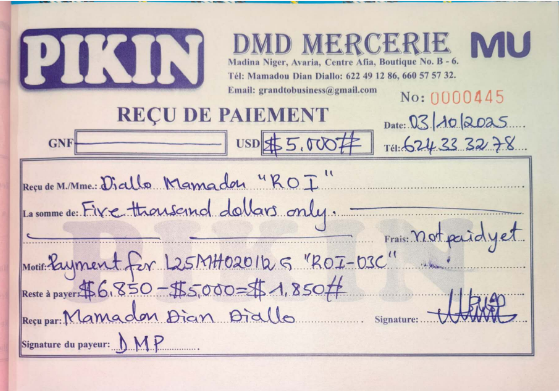 PIKIN
DMD MERCERIE MU
Madina Niger, Avaria, Centre Afia, Boutique No. B - 6.
Tél: Mamadou Dian Diallo: 622 49 12 86, 660 57 57 32.
Email: grandtobusiness@gmail.com
No: 0000445
REÇU DE PAIEMENT
Date: 03/10/2025
GNF USD $5,000#
Tél: 624 33 32 78
Reçu de M./Mme.: Diallo Mamadou "ROI"
La somme de: Five thousand dollars only.
Frais: Not paid yet
Motif: Payment for "ROI-03C"
Reste à payer: $6,850 - $5,000 = $1,850#
Reçu par: Mamadou Dian Diallo
Signature:
Signature du payeur: DMP
PIKIN